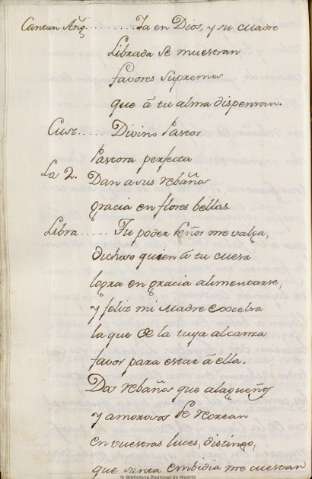 Cantan Ang. Ya en Dios, y su Madre
Librada se muestran
favores supremos
que â tu alma dispensan.
Cust. Divino Pastor
Pastora perfecta
La 2. Dan a sus rebaños
gracia en flores bellas
Libra Tu poder Señor me valga,
dichoso quien â tu cuesta
logra en gracia alimentarse,
y feliz mi Madre excelsa
la que de la tuya alcanza
favor para estar â ella.
Dos rebaños que alagueños
y amorosos se recrean
en vuestras luces, distingo,
que nunca embidia me cuestan
Biblioteca Nacional de España